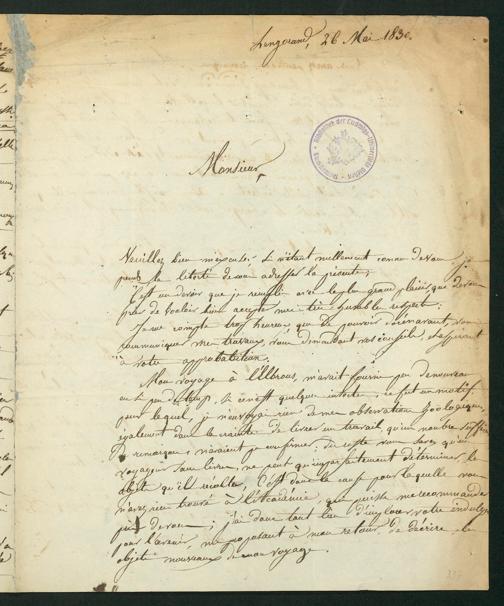 Lengorand, 26 Mai 1830.
Monsieur,
Veuillez bien m'excuser, si n'étant nullement connu de vous je
prends la liberté de vous adresser la présente,
C'est un devoir que je remplis avec le plus grand plaisir que de vous
prier de vouloir bien accepter mes très humbles respects.
Je me compte trop heureux que de pouvoir dorénavant, vous
communiquer mes travaux, vous demandant vos conseils, et aspirant
à votre approbabtion.
Mon voyage à l'Elbrous, m'avait fourni peu de nouveau
en si peu de temps, si ce n'est quelques insectes, ce fut un motif
pour lequel, je n'envoyai rien de mes observations zoologiques,
également dans la crainte de livrer un travail qu'un nombre suffisant
de remarques n'avaient pu confirmer. Du reste vous savez qu'un
voyageur sans livres, ne peut qu'imparfaitement déterminer les
objets qu'il récolte, C'est donc la cause pour laquelle vous
n'avez rien trouvé à l'Académie, qui puisse me recommander
près de vous; j'ai donc tout lieu d'implorer votre indulgence
pour l'avenir, me proposant à mon retour de décrire les
objets nouveaux de mon voyage.